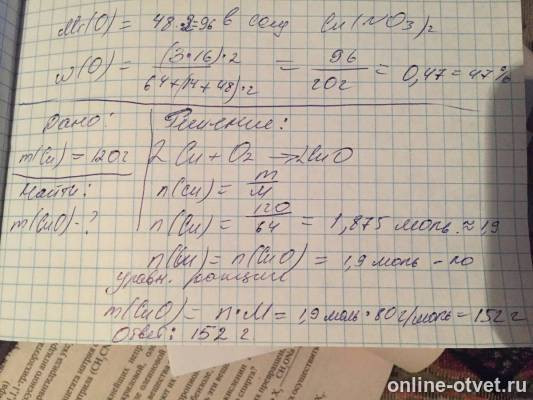 Mr(O) = 48·2=96 в соед Cu(NO3)2
w(O) = (3·16)·2 / 64+(14+48)·2 = 96 / 20г = 0,47 = 47%
Дано:
m(Cu) = 120г
Найти:
m(CuO)-?
Решение:
2Cu + O2 → 2CuO
n(Cu) = m / M
n(Cu) = 120 / 64 = 1,875 моль ≈ 1,9
n(Cu) = n(CuO) = 1,9 моль - по
уравн. реакции
m(CuO) = n·M = 1,9 моль · 80 г/моль = 152 г
Ответ: 152 г
online-otvet.ru